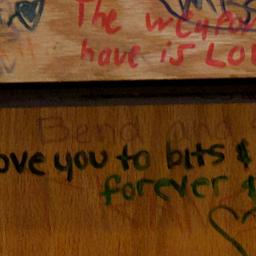 The weapon
have is LO
Bend and
ove you to bits &
forever &